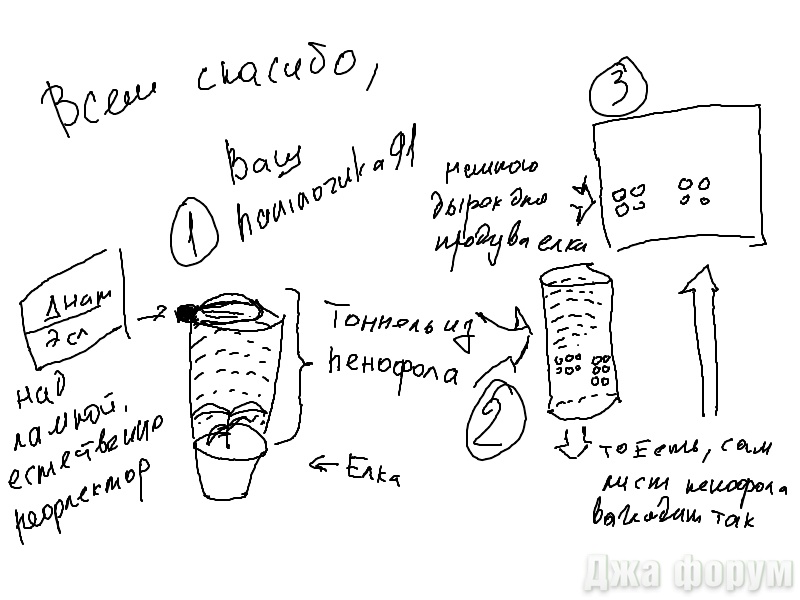 Всем спасибо,
Ваш
1
3
немного
дырок для
продува елки
Днат
Эсл
над
лампой,
естественно
рефлектор
Тоннель из
пенофола
Елка
2
то Есть, сам
лист пенофола
выглядит так
Джа форум